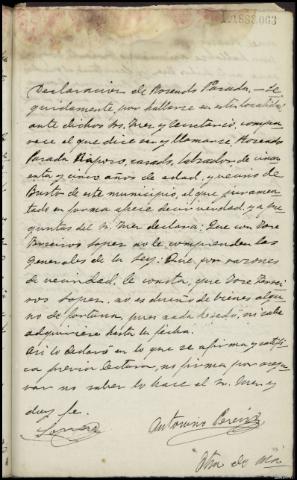 1.1883.063
Declaracion de Rosendo Parada, — Se
guidamente, por hallarse en esta localidad
ante dichos Sr. Juez y Secretario, compa
rece el que dice ser y llamarse Rosendo
Parada casado, labrador de
enta y cinco años de edad, y vecino de
Busto de este municipio, el que juramen
tado en forma ofrece decir verdad, y a pre
guntas del Sr. Juez declara: Que con Jose
Lopez no le comprenden las
generales de la ley: Que, por razones
de vecindad, le consta, que Jose
Lopez, no es dueño de bienes algu
no de fortuna, pues nada heredó, ni sabe
adquiriera hasta la fecha.
Asi lo declaró en lo que se afirma y ratifi
ca previa lectura, no firma por asegu
rar no saber lo hace el Sr. Juez, y
doy fe.
Antonino Pereira